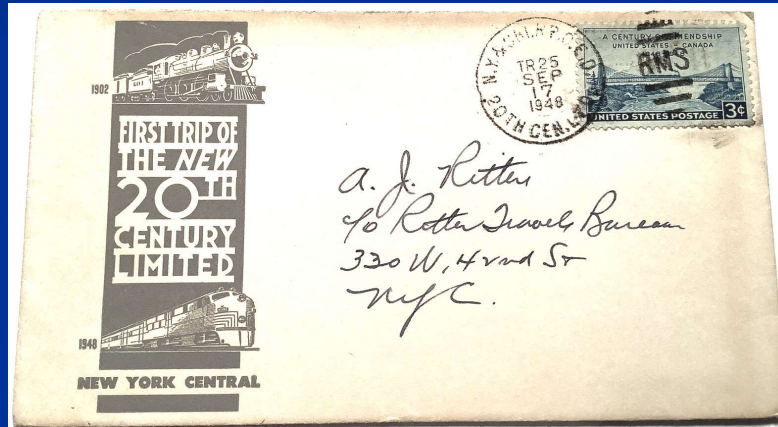 1902
FIRST TRIP OF
THE NEW
20TH
CENTURY
LIMITED
1948
NEW YORK CENTRAL
TR 25
SEP
17
1948
20TH CEN. LTD.
RMS
A CENTURY OF FRIENDSHIP
UNITED STATES – CANADA
UNITED STATES POSTAGE 3¢
A. J. Ritter
c/o Ritter Travel Bureau
330 W. 42nd St
NYC.